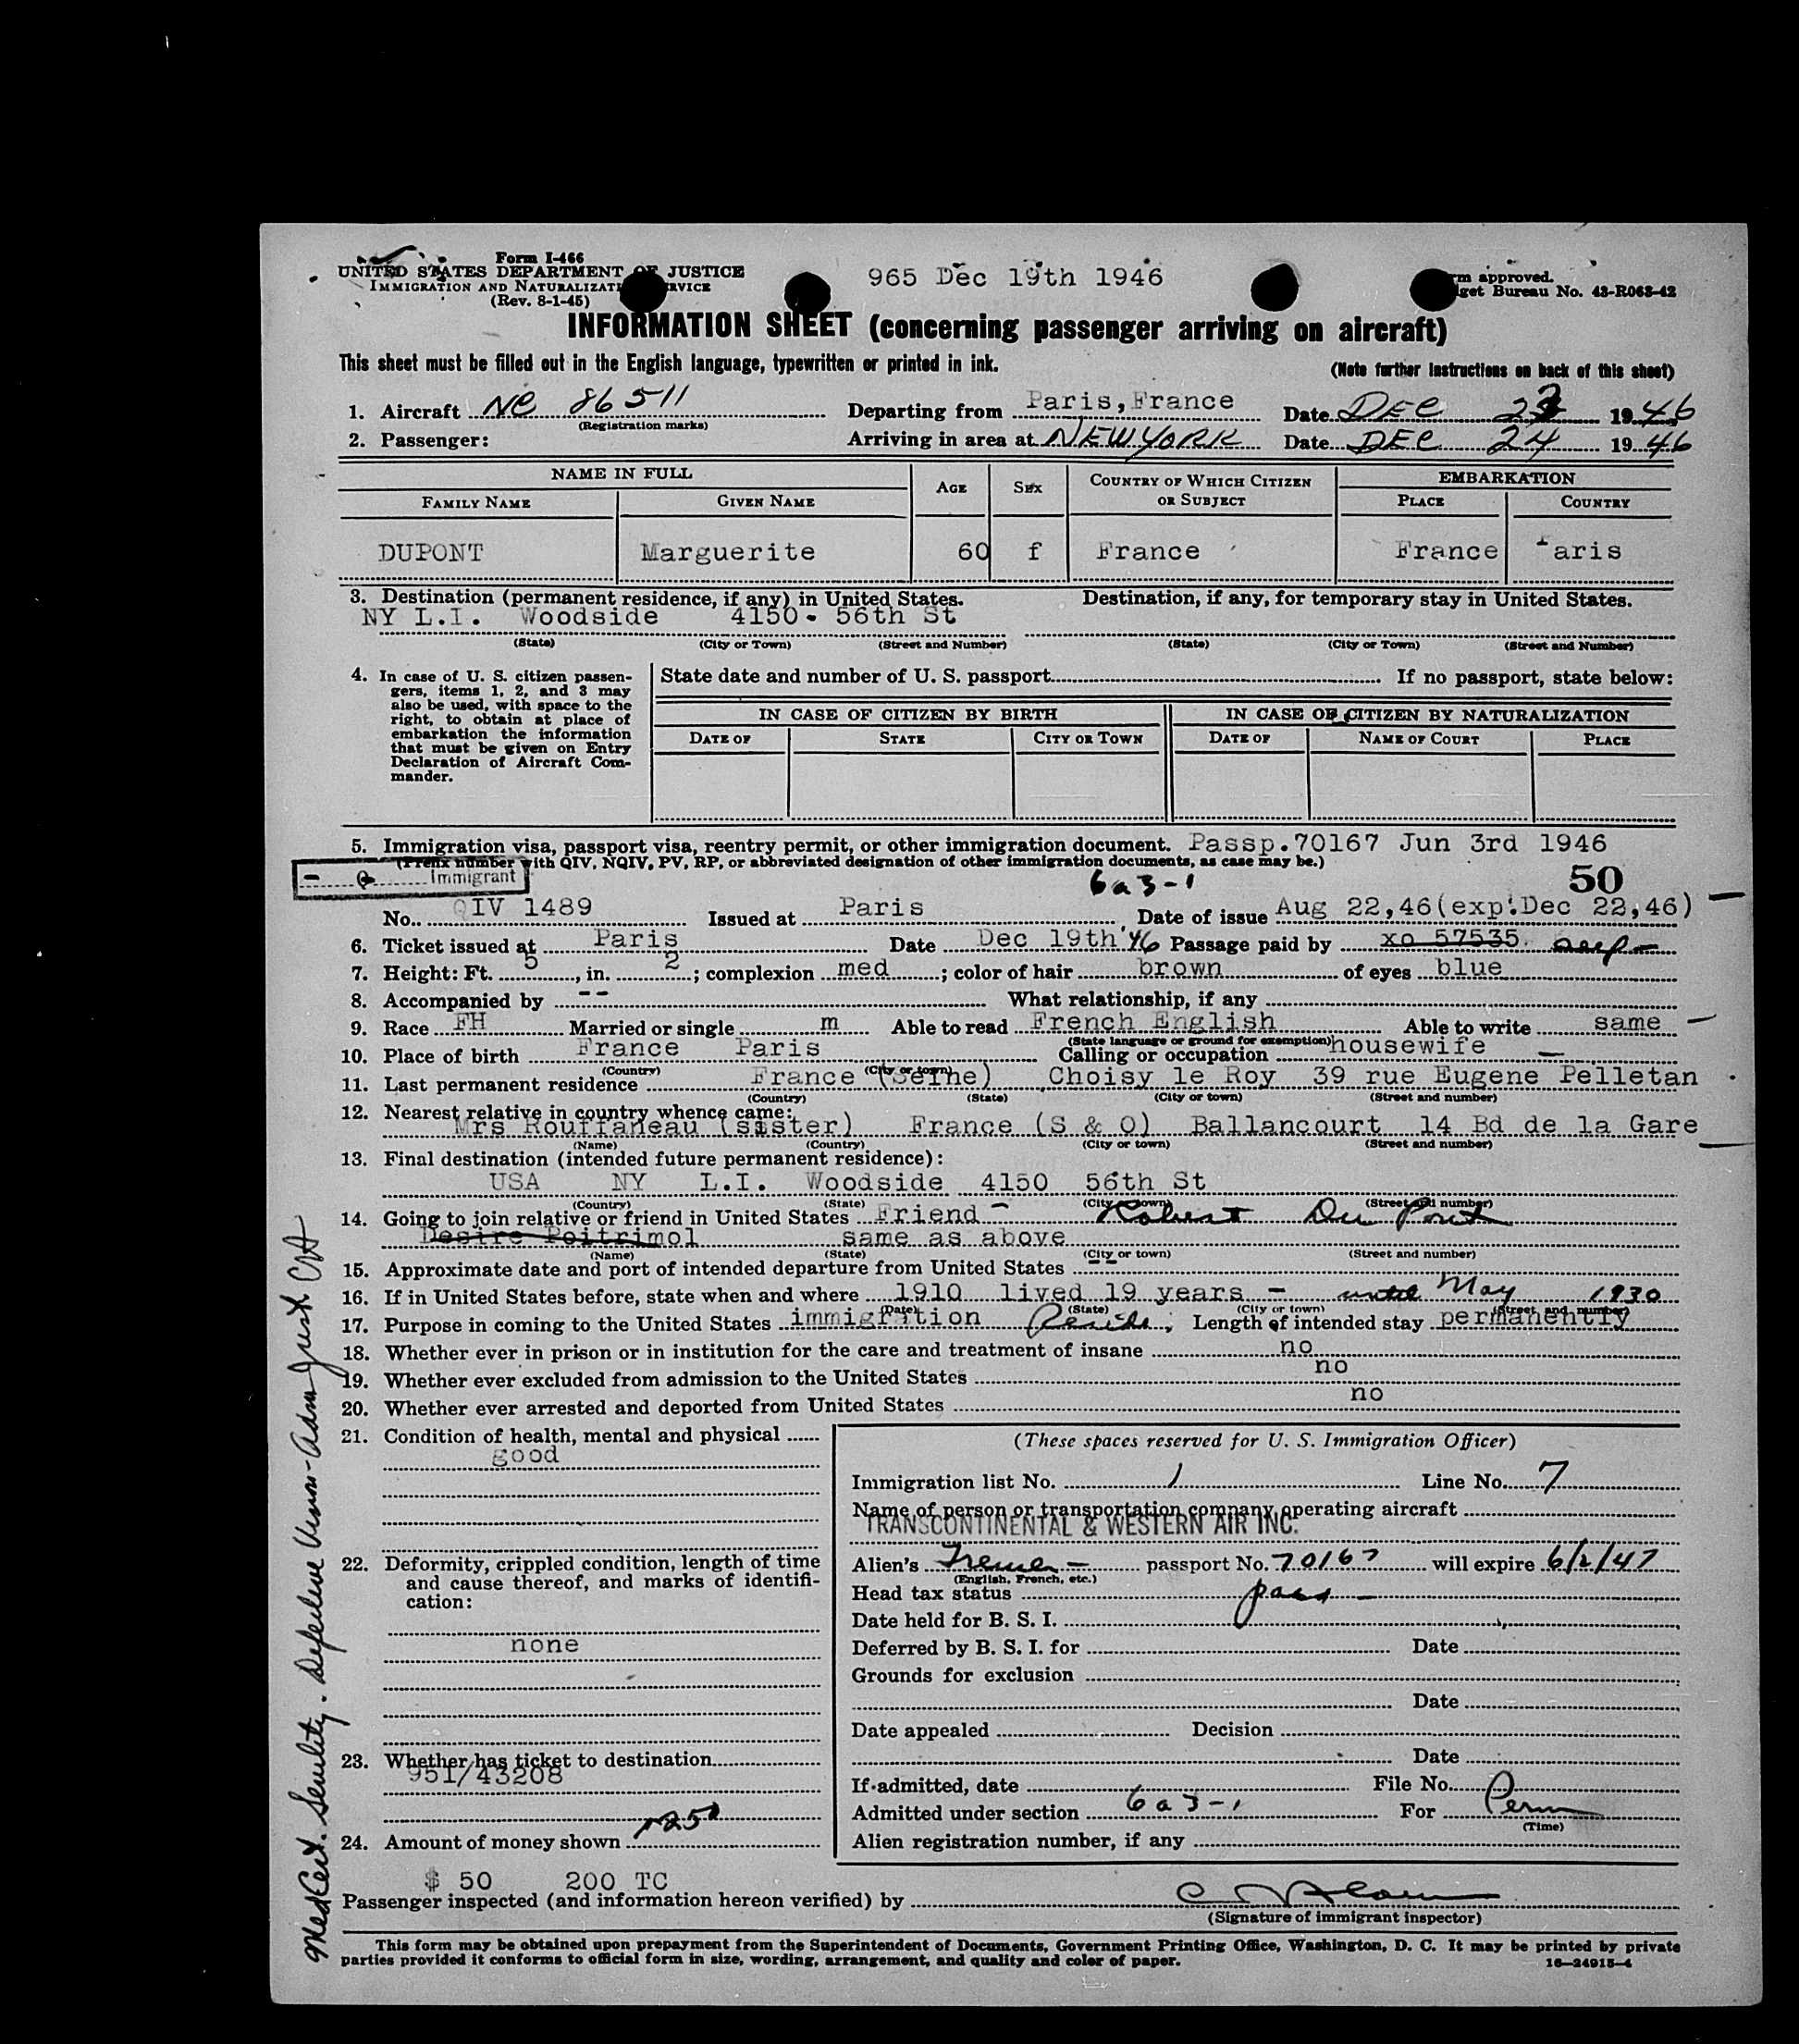 Form I-466
UNITED STATES DEPARTMENT OF JUSTICE
IMMIGRATION AND NATURALIZATI RVICE
(Rev. 8-1-45)
965 Dec 19th 1946
m approved.
get Bureau No. 43-R063-42
INFORMATION SHEET (concerning passenger arriving on aircraft)
This sheet must be filled out in the English language, typewritten or printed in ink.
(Note further instructions on back of this sheet)
1. Aircraft NC 86511 Departing from Paris, France Date DEC 23 1946
(Registration marks)
2. Passenger: Arriving in area at NEW YORK Date DEC 24 1946
NAME IN FULL AGE SEX COUNTRY OF WHICH CITIZEN OR SUBJECT EMBARKATION
FAMILY NAME GIVEN NAME PLACE COUNTRY
DUPONT Marguerite 60 f France France Paris
3. Destination (permanent residence, if any) in United States. Destination, if any, for temporary stay in United States.
NY L.I. Woodside 4150- 56th St
(State) (City or Town) (Street and Number) (State) (City or Town) (Street and Number)
4. In case of U. S. citizen passen-
gers, items 1, 2, and 3 may
also be used, with space to the
right, to obtain at place of
embarkation the information
that must be given on Entry
Declaration of Aircraft Com-
mander.
State date and number of U. S. passport If no passport, state below:
IN CASE OF CITIZEN BY BIRTH IN CASE OF CITIZEN BY NATURALIZATION
DATE OF STATE CITY OR TOWN DATE OF NAME OF COURT PLACE
5. Immigration visa, passport visa, reentry permit, or other immigration document. Passp.70167 Jun 3rd 1946
(Prefix number with QIV, NQIV, PV, RP, or abbreviated designation of other immigration documents, as case may be.)
- Q Immigrant
6a3-1 50
No. QIV 1489 Issued at Paris Date of issue Aug 22,46(exp.Dec 22,46)
6. Ticket issued at Paris Date Dec 19th '46 Passage paid by xo 57535
7. Height: Ft. 5, in. 2; complexion med; color of hair brown of eyes blue
8. Accompanied by -- What relationship, if any
9. Race FH Married or single m Able to read French English Able to write same
(State language or ground for exemption)
10. Place of birth France Paris Calling or occupation housewife
(Country) (City or town)
11. Last permanent residence France (Seine) Choisy le Roy 39 rue Eugene Pelletan
(Country) (State) (City or town) (Street and number)
12. Nearest relative in country whence came:
Mrs Rouffaneau (sister) France (S & O) Ballancourt 14 Bd de la Gare
(Name) (Country) (City or town) (Street and number)
13. Final destination (intended future permanent residence):
USA NY L.I. Woodside 4150 56th St
(Country) (State) (City or town) (Street and number)
14. Going to join relative or friend in United States Friend - Robert Du Pont
Desire Poitrimol same as above
(Name) (State) (City or town) (Street and number)
15. Approximate date and port of intended departure from United States --
16. If in United States before, state when and where 1910 lived 19 years - until May 1930
(Date) (State) (City or town) (Street and number)
17. Purpose in coming to the United States immigration Reside; Length of intended stay permanently
18. Whether ever in prison or in institution for the care and treatment of insane no
19. Whether ever excluded from admission to the United States no
20. Whether ever arrested and deported from United States no
21. Condition of health, mental and physical
good
22. Deformity, crippled condition, length of time
and cause thereof, and marks of identifi-
cation:
none
23. Whether has ticket to destination
951/43208
24. Amount of money shown 250
$ 50 200 TC
(These spaces reserved for U. S. Immigration Officer)
Immigration list No. 1 Line No. 7
Name of person or transportation company operating aircraft
TRANSCONTINENTAL & WESTERN AIR INC.
Alien's French passport No. 70167 will expire 6/2/47
(English, French, etc.)
Head tax status paid
Date held for B. S. I.
Deferred by B. S. I. for Date
Grounds for exclusion
Date
Date appealed Decision
Date
If admitted, date File No.
Admitted under section 6a3-1 For Perm
(Time)
Alien registration number, if any
Passenger inspected (and information hereon verified) by
(Signature of immigrant inspector)
This form may be obtained upon prepayment from the Superintendent of Documents, Government Printing Office, Washington, D. C. It may be printed by private
parties provided it conforms to official form in size, wording, arrangement, and quality and color of paper.
16—24915-4
Med Cert. Senility. Defective Vision-Adm